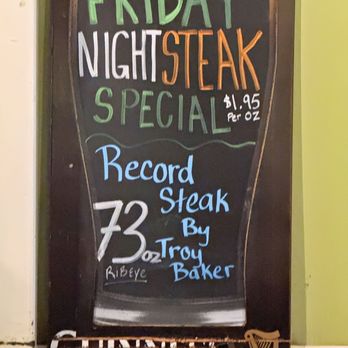 FRIDAY
NIGHT STEAK
SPECIAL $1.95
Per OZ
Record
Steak
73oz By
Troy
RiBEYE Baker
GUINNESS